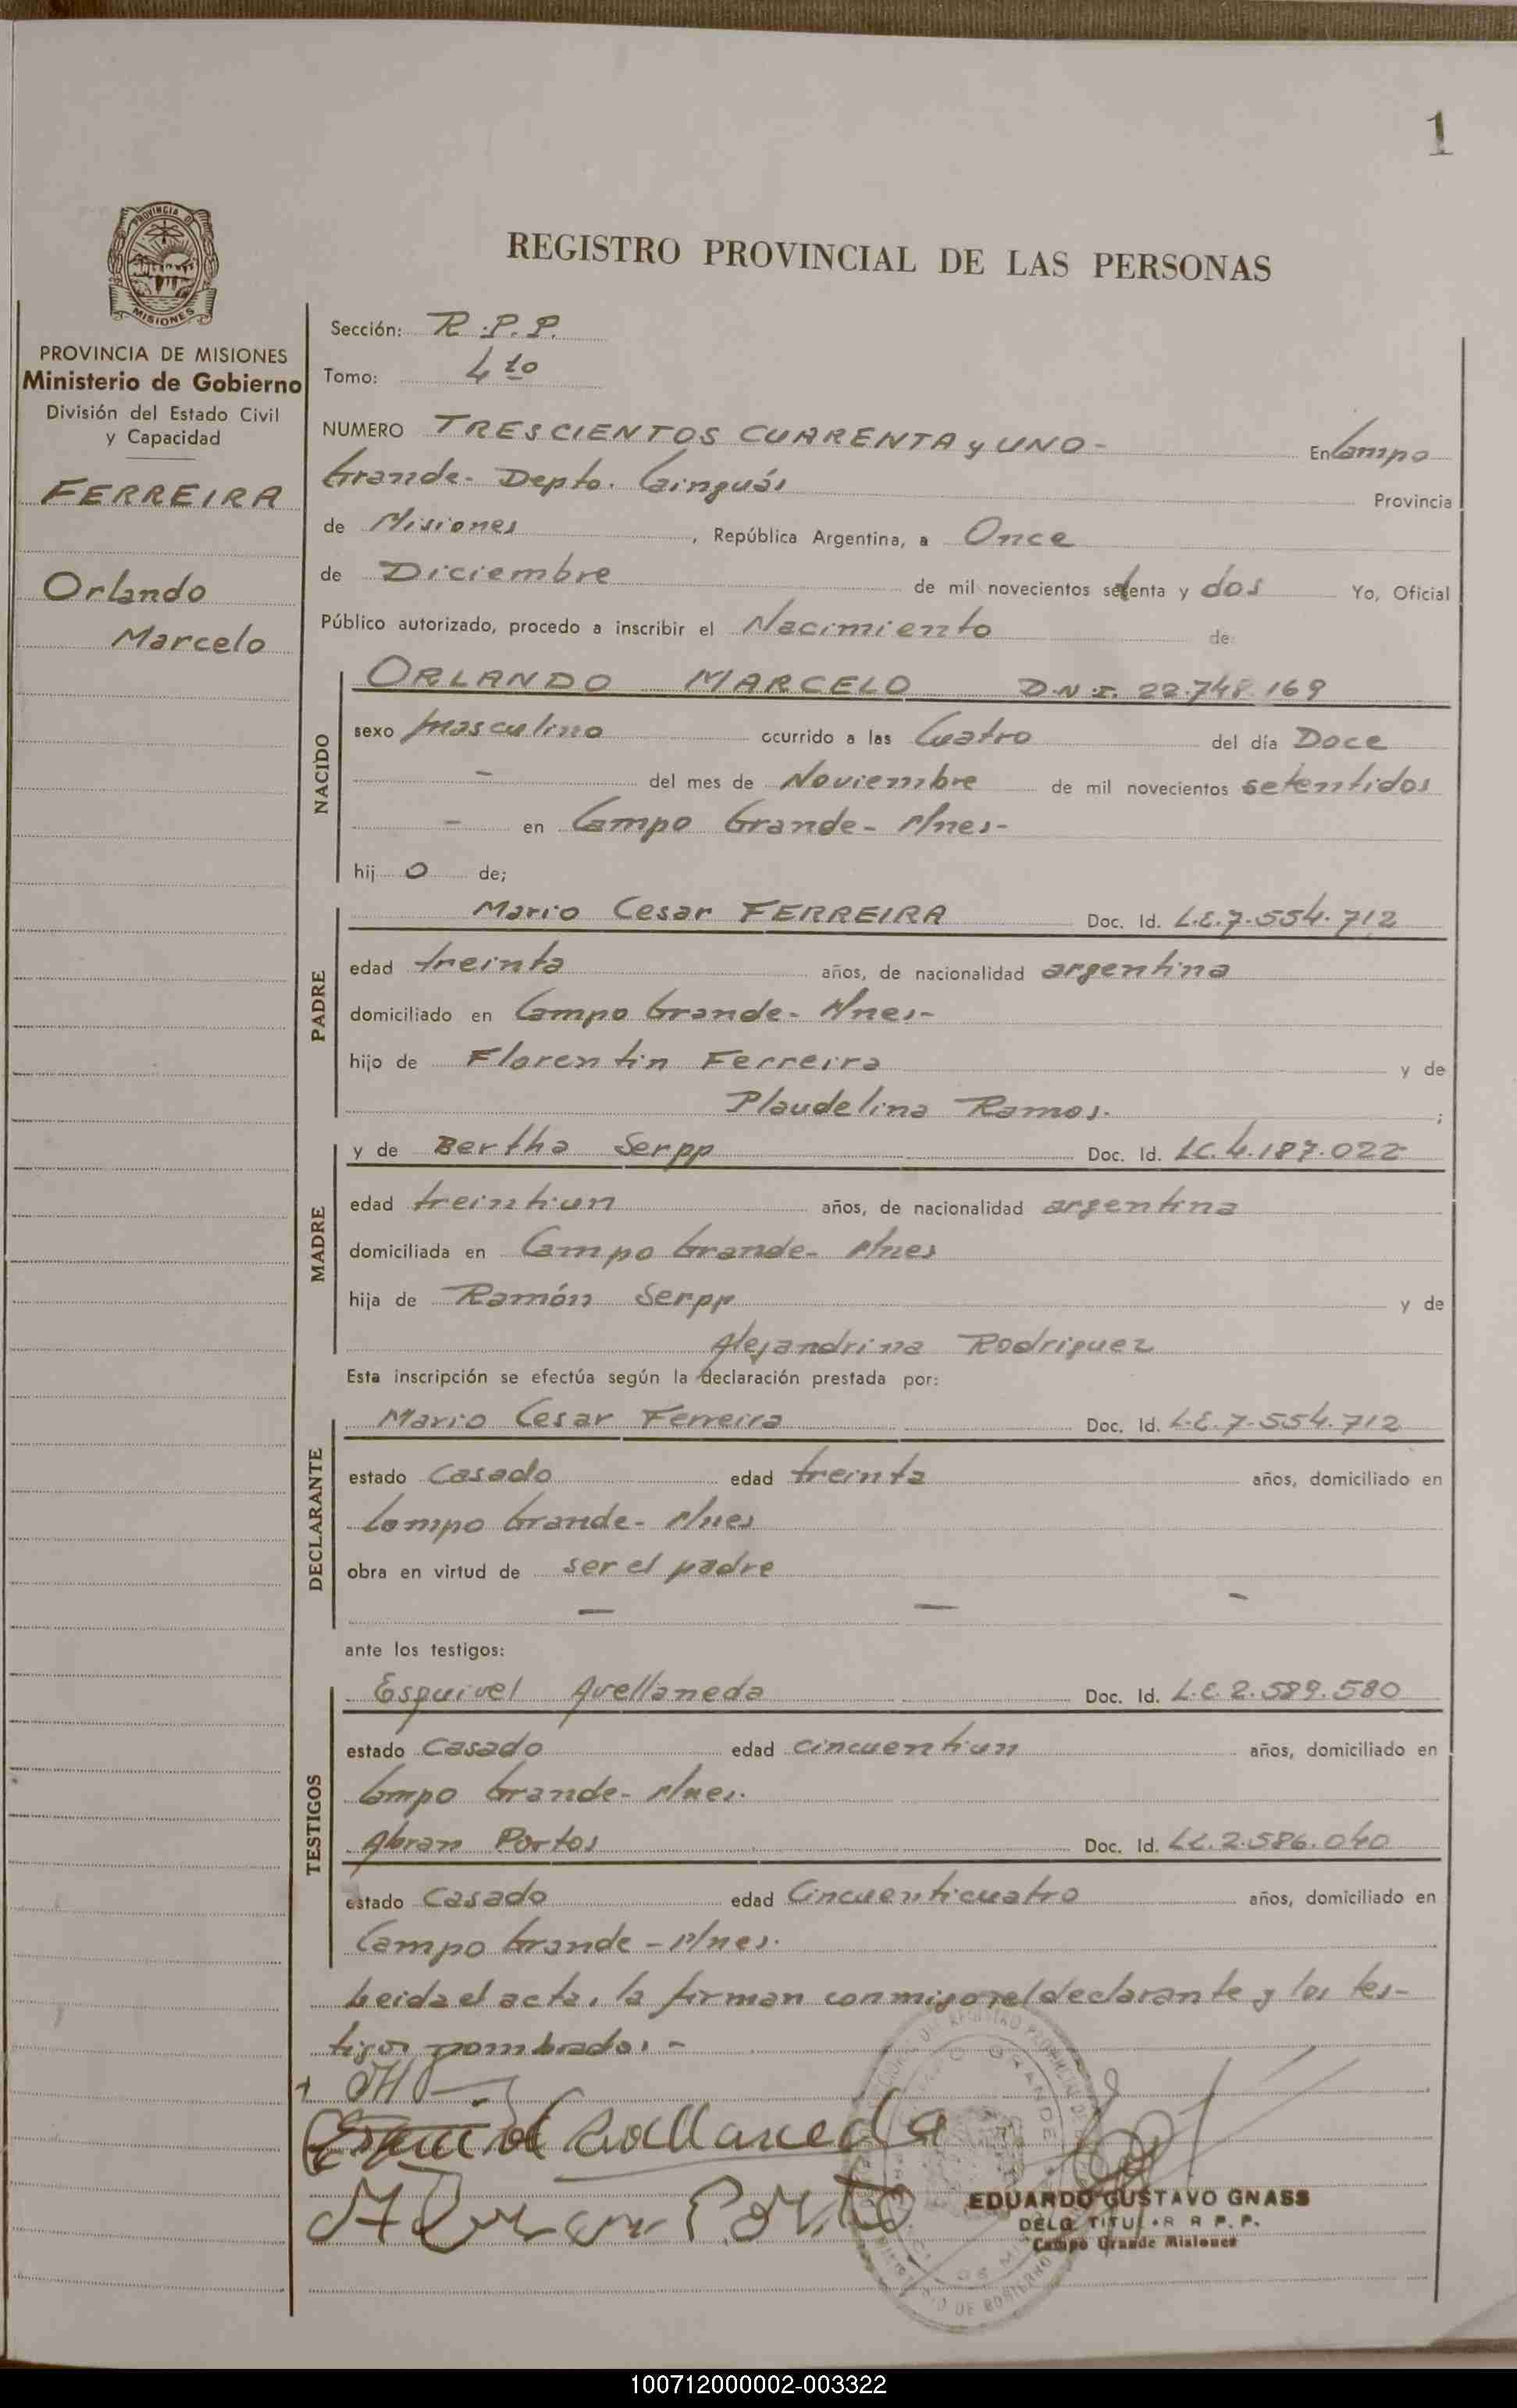 1
PROVINCIA DE
MISIONES
REGISTRO PROVINCIAL DE LAS PERSONAS
PROVINCIA DE MISIONES
Ministerio de Gobierno
División del Estado Civil
y Capacidad
FERREIRA
Orlando
Marcelo
Sección: R.P.P.
Tomo: 4to
NUMERO TRESCIENTOS CUARENTA y UNO- En Campo
Grande- Depto. Cainguás Provincia
de Misiones, República Argentina, a Once
de Diciembre de mil novecientos setenta y dos Yo, Oficial
Público autorizado, procedo a inscribir el Nacimiento de
ORLANDO MARCELO D.N.I. 22.748.169
NACIDO
sexo masculino ocurrido a las Cuatro del día Doce
- del mes de Noviembre de mil novecientos setentidos
- en Campo Grande- Mnes-
hij o de;
PADRE
Mario Cesar FERREIRA Doc. Id. L.E.7.554.712
edad treinta años, de nacionalidad argentina
domiciliado en Campo Grande- Mnes-
hijo de Florentin Ferreira y de
Plaudelina Ramos. ;
MADRE
y de Bertha Serpp Doc. Id. LC.4.187.022
edad treintiun años, de nacionalidad argentina
domiciliada en Campo Grande- Mnes
hija de Ramón Serpp y de
Alejandrina Rodriguez
Esta inscripción se efectúa según la declaración prestada por:
DECLARANTE
Mario Cesar Ferreira Doc. Id. L.E.7.554.712
estado Casado edad treinta años, domiciliado en
Campo Grande- Mnes
obra en virtud de ser el padre
- - -
ante los testigos:
TESTIGOS
Esquivel Avellaneda Doc. Id. L.E.2.589.580
estado Casado edad cincuentiun años, domiciliado en
Campo Grande- Mnes.
Abran Portos Doc. Id. LE.2.586.040
estado Casado edad Cincuenticuatro años, domiciliado en
Campo Grande - Mnes.
Leida el acta, la firman conmigo el declarante y los tes-
tigos nombrados -
Esquivel Avellaneda
Abran Porto
EDUARDO GUSTAVO GNASS
DELG. TITULAR R.P.P.
Campo Grande Misiones
100712000002-003322